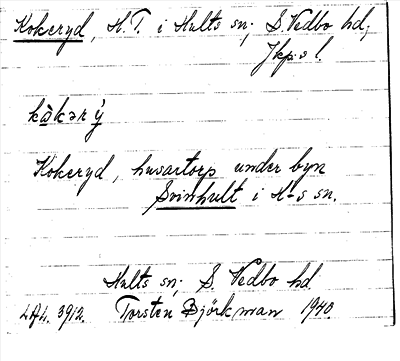 Kokeryd, H.T. i Hults sn; S. Vedbo hd;
Jkp.s l.
kàkər ý
Kokeryd, husartorp under byn
Svinhult i H-s sn.
Hults sn; S. Vedbo hd.
Torsten Björkman 1940.